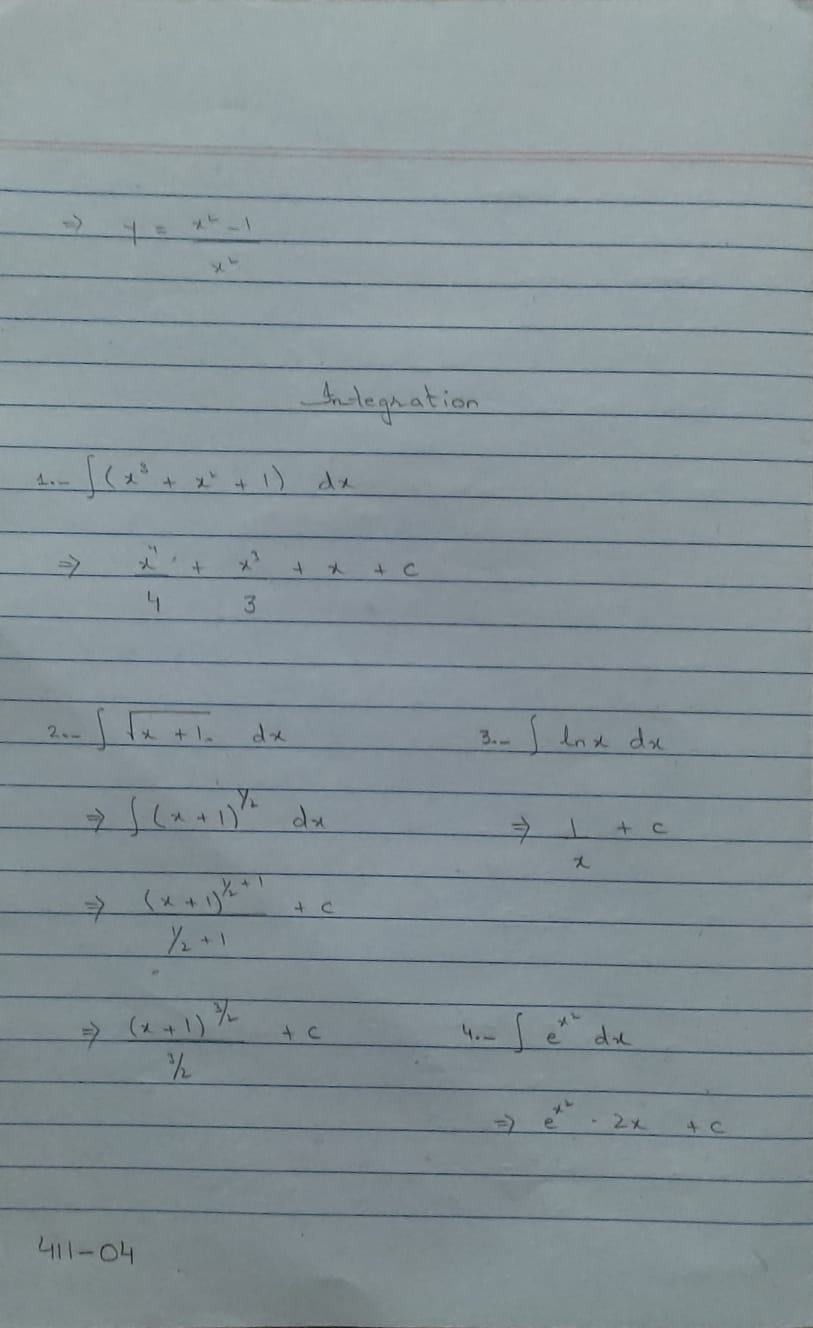 ⇒ y = (x² - 1)/x²
Integration
1.- ∫(x³ + x² + 1) dx
⇒ x⁴/4 + x³/3 + x + c
2.- ∫ √(x + 1) dx
⇒ ∫(x + 1)^(1/2) dx
⇒ (x + 1)^(1/2 + 1)/(1/2 + 1) + c
⇒ (x + 1)^(3/2)/(3/2) + c
3.- ∫ ln x dx
⇒ 1/x + c
4.- ∫ e^(x²) dx
⇒ e^(x²) · 2x + c
411-04